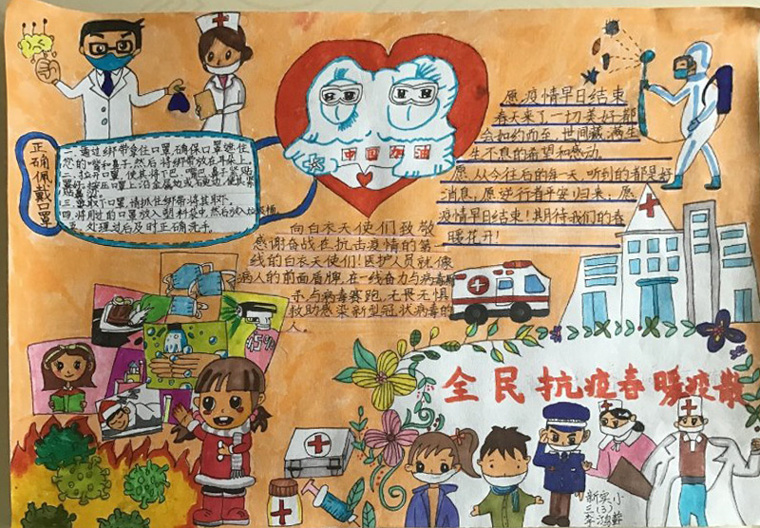 正确佩戴口罩
一.通过绑带拿住口罩,确保口罩遮住
您的嘴和鼻子,然后将绑带放在耳朵上。
二.拉开口罩,使其将下巴、嘴巴、鼻子紧贴
四.将用过的口罩放入塑料袋中,然后放入垃圾桶
五.处理过后及时正确洗手。
中国加油
愿疫情早日结束
春天来了一切美好都
会如约而至,世间藏满生
生不息的希望和感动。
愿从今往后的每一天,听到的都是好
消息,愿逆行者平安归来,愿
疫情早日结束!期待我们的春
暖花开!
向白衣天使们致敬
感谢奋战在抗击疫情的第一
线的白衣天使们!医护人员就像
病人的前面盾牌,在一线奋力与病毒
与病毒赛跑,无畏无惧
救助感染新型冠状病毒的
人。
75%
全民抗疫春暖疫散
新实小
三(3)